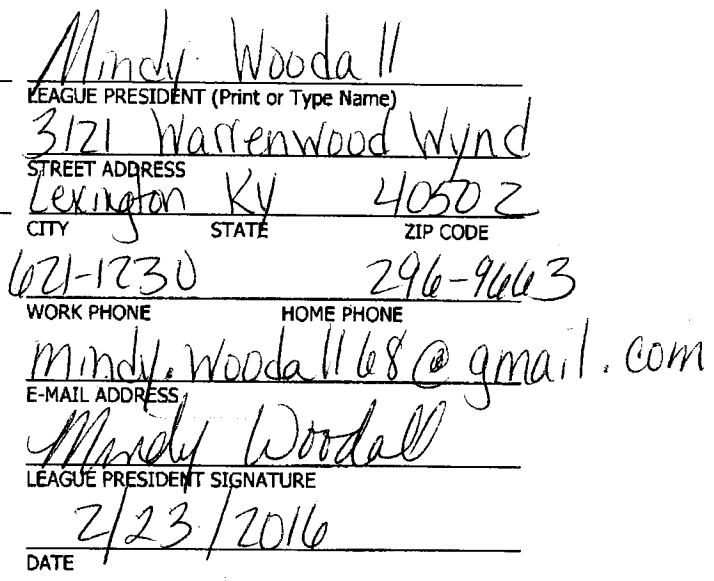 Mindy Woodall
LEAGUE PRESIDENT (Print or Type Name)
3121 Warrenwood Wynd
STREET ADDRESS
Lexington Ky 40502
CITY STATE ZIP CODE
621-1230 296-9663
WORK PHONE HOME PHONE
mindy.woodall68@gmail.com
E-MAIL ADDRESS
Mindy Woodall
LEAGUE PRESIDENT SIGNATURE
2/23/2016
DATE